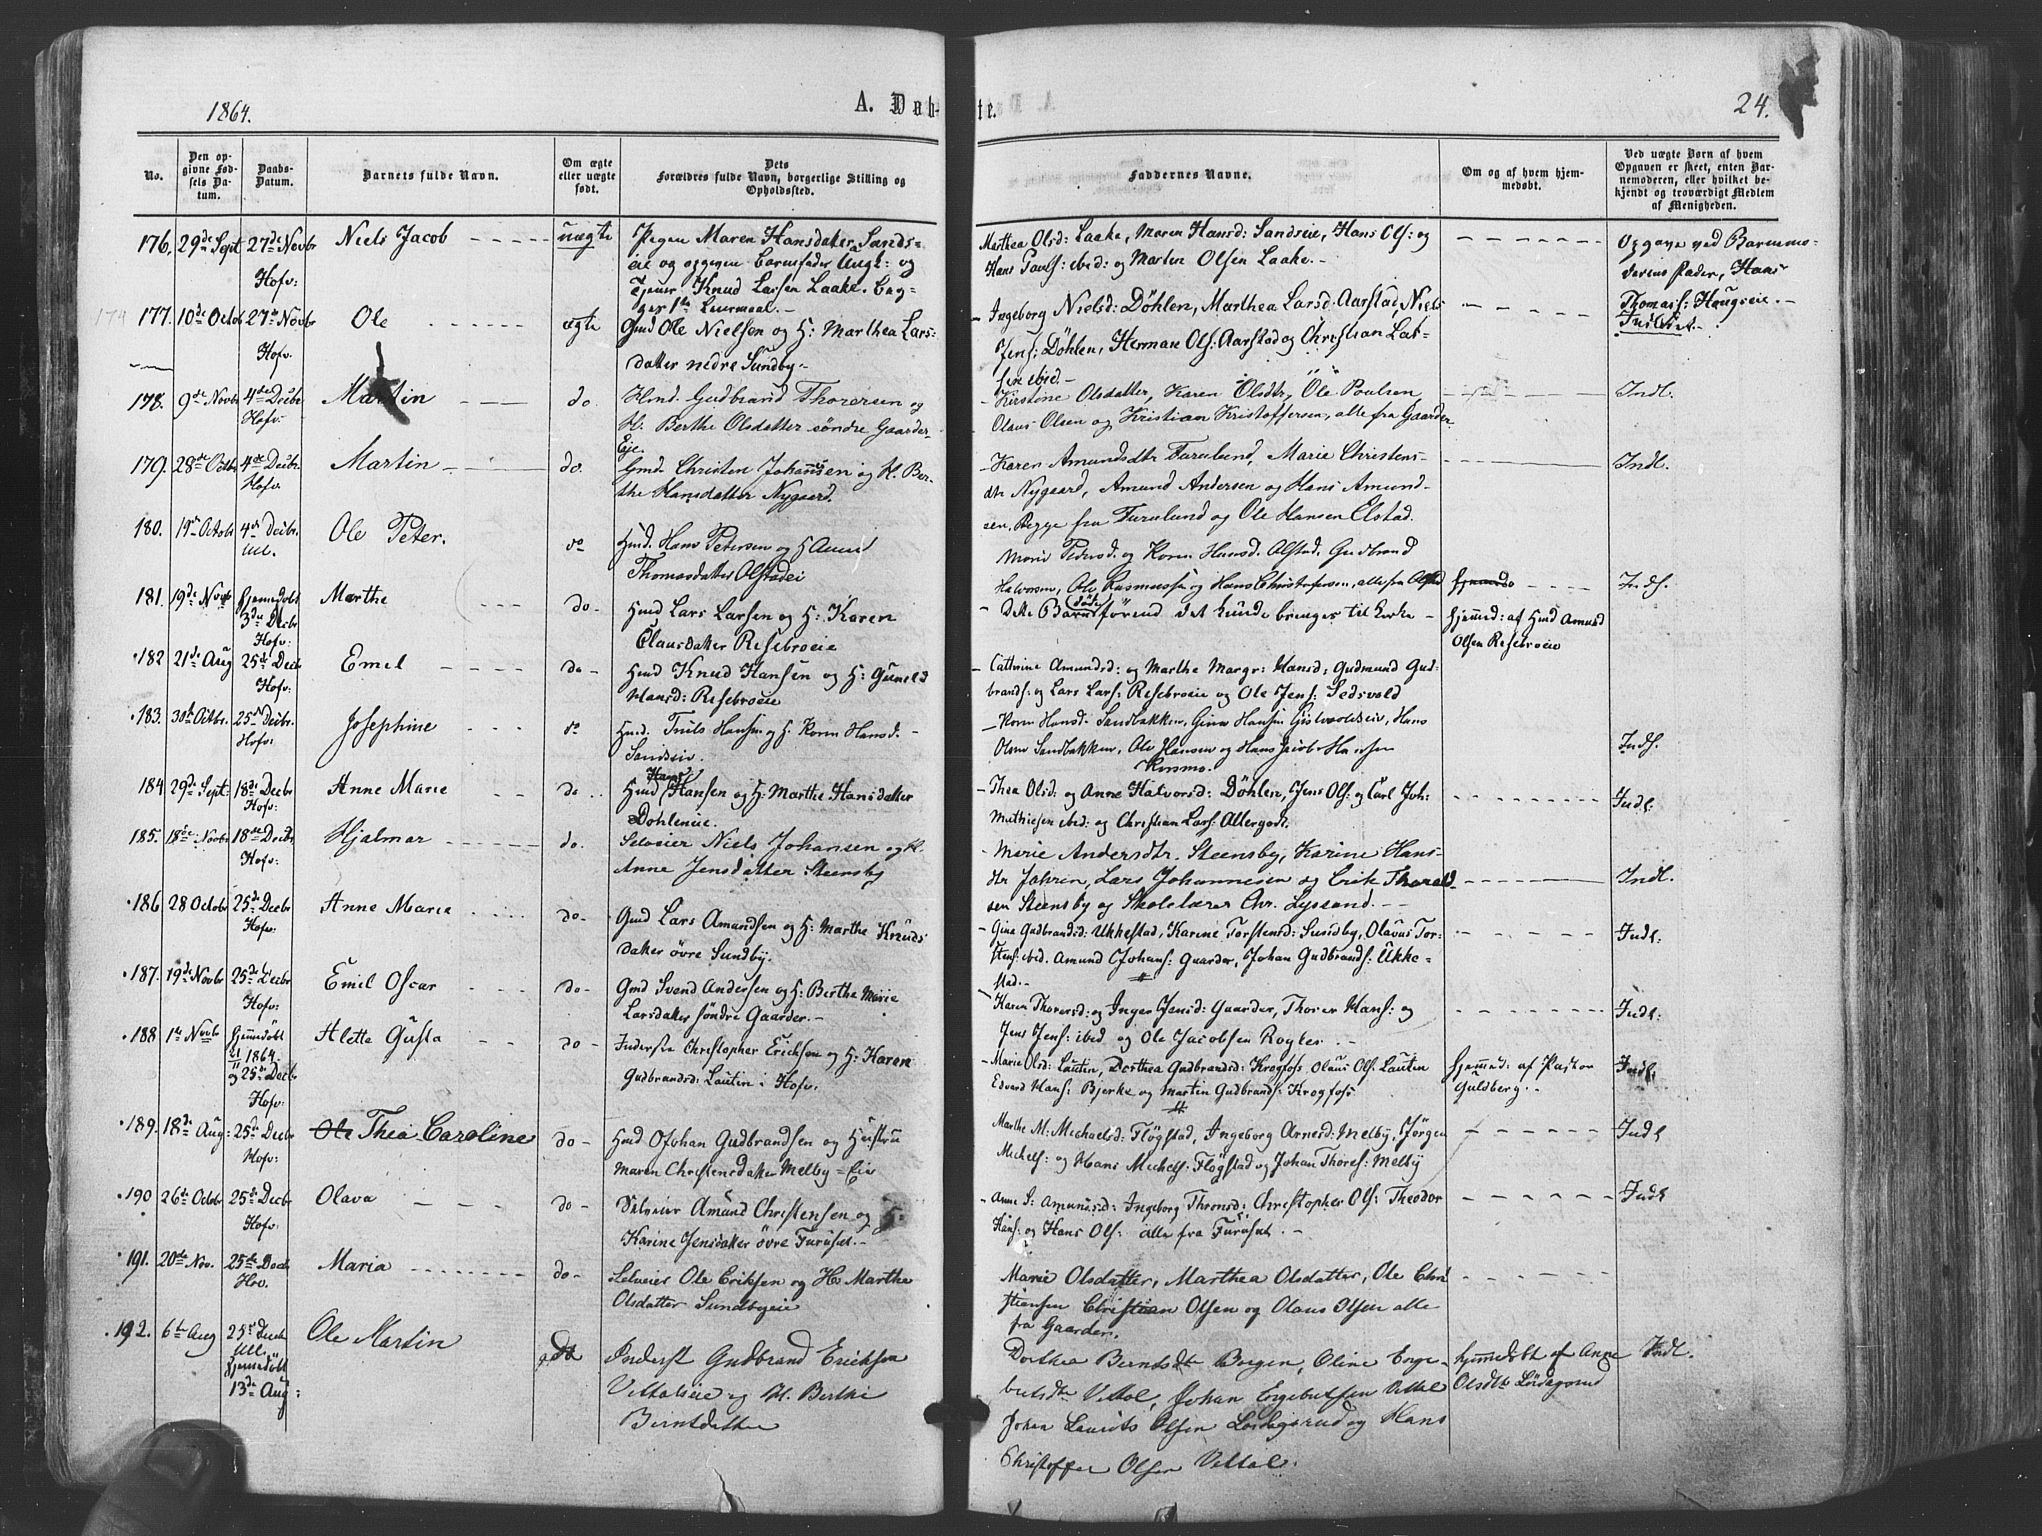 1864.
A. Dåb-
te.
24.
No.
Den op-
givne Fød-
sels Da-
tum.
Daabs-
Datum.
Barnets fulde Navn.
Om ægte
eller uægte
født.
Dets
Forældres fulde Navn, borgerlige Stilling og
Opholdssted.
Faddernes Navne.
Om og af hvem hjem-
medøbt.
Ved uægte Børn af hvem
Opgaven er skeet, enten Bar-
nemoderen, eller hvilket be-
kjendt og troværdigt Medlem
af Menigheden.
176. 29de Sept 27de Novbr
Hofv:
Niels Jacob
uægte
Pigen Maren Hansdatter Sands-
eie og opgiven Barnefader Ungk: og
Tjener Knud Larsen Laake. Beg-
ges 1ste Leiermaal.
Marthea Olsd: Laake, Maren Hansd: Sandseie, Hans Ols: og
Hans Pauls: ibid: og Marten Olsen Laake.
Opgave ved Barnemo-
derens Fader, Hans
Thomass: Haugseie.
Indl.
174
177. 10de Octob 27de Novbr
Hofv:
Ole
ægte
Gmd Ole Nielsen og H: Marthea Lars-
datter nedre Sundby
Ingeborg Nielsd: Döhlen, Marthea Larsd: Aarstad, Niels
Jens: Döhlen, Herman Ols: Aarstad og Christian Lar-
sen ibid.
178. 9de Novbr 4de Decbr
Hofv:
Martin
do.
Hmd. Gudbrand Thorersen og
H. Berthe Olsdatter søndre Gaarder-
Eje.
Kirstine Olsdatter, Karen Olsdtr, Ole Poulsen,
Olaus Olsen og Kristian Kristoffersen, alle fra Gaarder
Indl.
179. 28de Octbr 4de Decbr.
Hofv
Martin
do.
Gmd. Christen Johannsen og H. Ber-
the Hansdatter Nygaard.
Karen Amundsdtr Furulund, Marie Christens-
dtr Nygaard, Amund Andersen og Hans Amund-
sen, Begge fra Furulund og Ole Hansen Elstad.
Indl.
180. 19de Octob 4de Decbr.
Ull.
Ole Peter.
do
Hmd. Hans Petersen og H Anne
Thomasdatter Olstadei
Marie Pedersd. og Karen Hansd. Olstad, Gudbrand
Halvorsen, Ole Rasmussen og Hans Christofersen, alle fra Olstad
Indl.
181. 19de Novb Hjemmedøbt
3de Decbr
Hofv:
Marthe
do
Hmd Lars Larsen og H: Karen
Olausdatter Risebroeie
Dette Barn døde førend det kunde bringes til Kirke
Hjemmed: af Hmd Amund
Olsen Risebroeie
182 21de Aug 25de Decb
Hofv:
Emil
do
Hmd Knud Hansen og H: Gunild
Hansd: Risebroeie
Cathrine Amundsd: og Marthe Margr: Hansd: Gudmund Gud-
brands: og Lars Lars: Risebroeie og Ole Jens: Sedsvold
183. 30te Octbr. 25de Decbr.
Hofv:
Josephine
do
Hmd. Truls Hansen og H. Karen Hansd.
Sandseie.
Karen Hansd. Sandbakken, Gina Hansen Gislevoldseie, Hans
Olsen Sandbakken, Ole Hansen og Hans Jacob Hansen
Kosmo.
Indl.
184 29de Sept: 18de Decbr
Hofv:
Anne Marie
do
Hmd Hans Hansen og H: Marthe Hansdatter
Dohleneie.
Thea Olsd: og Anne Halvorsd: Döhlen, Jens Ols: og Carl Joh:
Mathiesen ibid: og Christian Lars: Allergodt.
Indl:
185. 18de Novbr 18de Decbr
Hofv:
Hjalmar
do.
Selveier Niels Johansen og H.
Anne Jensdatter Steensby
Marie Andersdtr. Steensby, Karine Hans-
dtr Jahren, Lars Johannesen og Erik Thorald-
sen Steensby og Skolelærer Chr. Lyssand.
Indl.
186 28 Octobr 25de Decbr
Hofv:
Anne Maria
do
Gmd Lars Amundsen og H: Marthe Knuds
datter øvre Sundby.
Gina Gudbrandsd: Ukkestad, Karine Torstensd: Sundby, Olavus Tor-
stens: ibid. Amund Johans: Gaarder, Johan Gudbrands: Ukke-
stad.
Indl:
187. 19de Novbr 25de Decbr
Hofv:
Emil Oscar
do
Gmd Svend Andersen og H: Berthe Marie
Larsdatter Søndre Gaarder.
Karen Thorersd: og Inger Jensd: Gaarder, Thorer Hans: og
Jens Jens: ibid og Ole Jacobsen Rogter.
Indl:
188 1ste Novb Hjemmedöbt
21/11 1864.
og 25de Decbr
Hofv:
Alette Gusta
do
Inderste Christopher Ericksen og H: Karen
Gudbrandsd: Lautin i Hofv:
Marie Olsd: Lautin, Dorthea Gudbrandsd: Krogfoss Olaus Ols: Lautin
Edvard Hans: Bjerke og Martin Gudbrands: Krogfoss
Hjemmed: af Pastor
Guldberg.
Indl:
189. 18de Aug: 25de Decbr
Hofv:
Ole Thea Caroline
do
Hmd Johan Gudbrandsen og Hustru
Maren Christensdatter Melby-Eie
Marthe M: Michaelsd: Flögstad, Ingeborg Arnesd: Melby, Jørgen
Michels: og Hans Michels: Flogstad og Johan Thores: Melby
Indl
190 26de Octobr 25de Decbr
Hofv:
Olava
do
Selveier Amund Christensen og H:
Karine Jensdatter øvre Furuset
Anne S: Amundsd: Ingeborg Thronsd: Christopher Ols: Theodor
Hans: og Hans Ols: alle fra Furuset.
Indl
191. 20de Nov. 25de Decb
Hov.
Maria
do
Selveier Ole Eriksen og H. Marthe
Olsdatter Sundbyeie
Marie Olsdatter, Marthea Olsdatter, Ole Chri
stiansen Christian Olsen og Olaus Olsen alle
fra Gaarder.
192. 6te Aug 25de Decb
Ull.
Hjemmedöbt
13de Aug:
Ole Martin
do
Inderst Gudbrand Ericksen
Veltaleie og H. Berthe
Berntsdatter
Dorthea Berntsdtr Borgen, Oline Enge-
bretsdtr Veltal, Johan Engebretsen Veltal
Johan Laurits Olsen Lördagsrud og Hans
Christoffer Olsen Veltal.
hjemmedöbt af Anne
Olsdtr Lördagsrud
Indl.